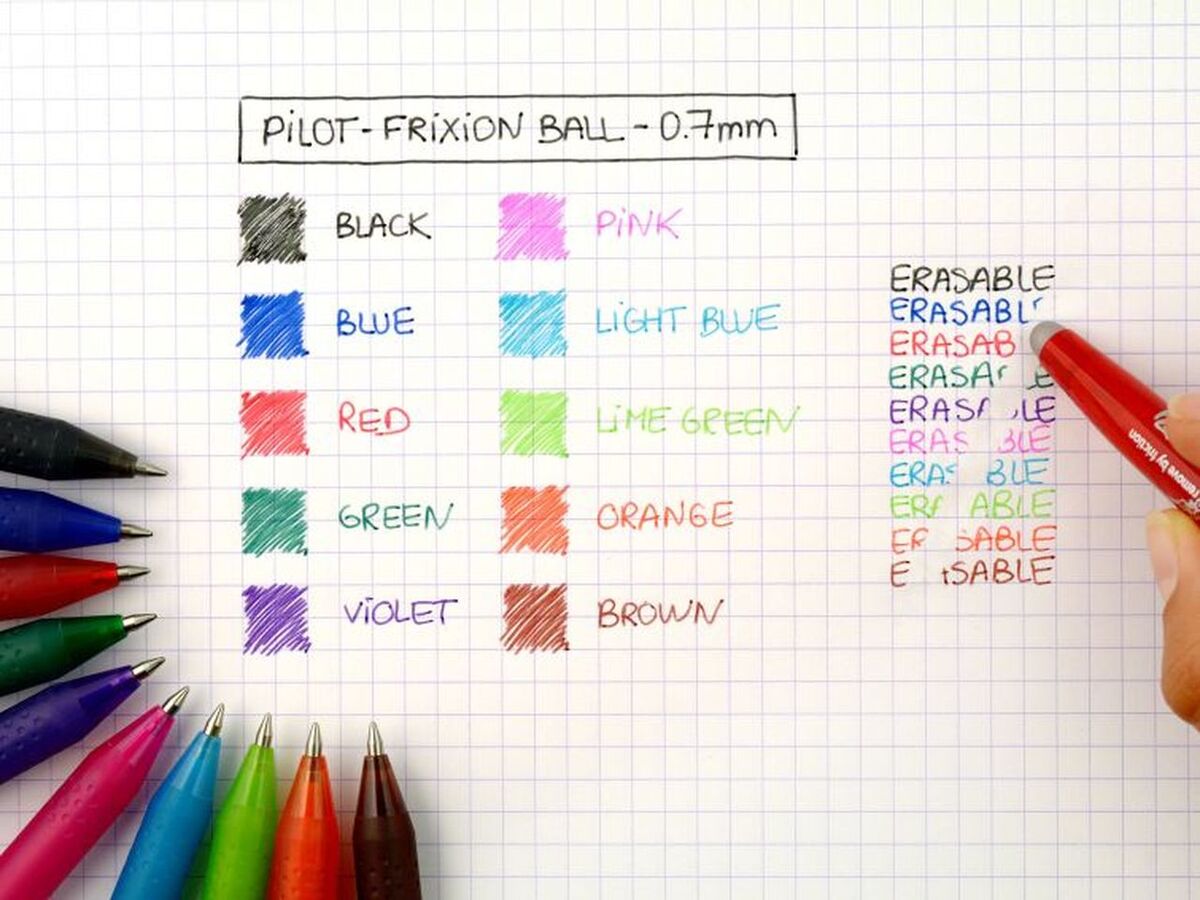 PiLOT-FRiXiON BALL - 0.7mm
BLACK
BLUE
RED
GREEN
ViOLET
PiNK
LiGHT BLUE
LiME GREEN
ORANGE
BROWN
ERASABLE
ERASABL
ERASAB
ERASA E
ERAS LE
ERAS BLE
ERAS BLE
ER ABLE
ER SABLE
E SABLE
remove by friction